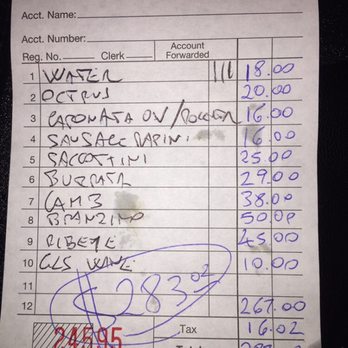 Acct. Name:
Acct. Number:
Reg. No. Clerk Account Forwarded
1 WATER ||| 18.00
2 OCTPUS 20.00
3 CAPONATA OV/ 16.00
4 SAUSAGE RAPINI 16.00
5 SACCOTTINI 25.00
6 BURRATA 29.00
7 LAMB 38.00
8 BRANZINO 50.00
9 RIBEYE 45.00
10 GLS WINE 10.00
11
12 267.00
$283.02
24595 Tax 16.02